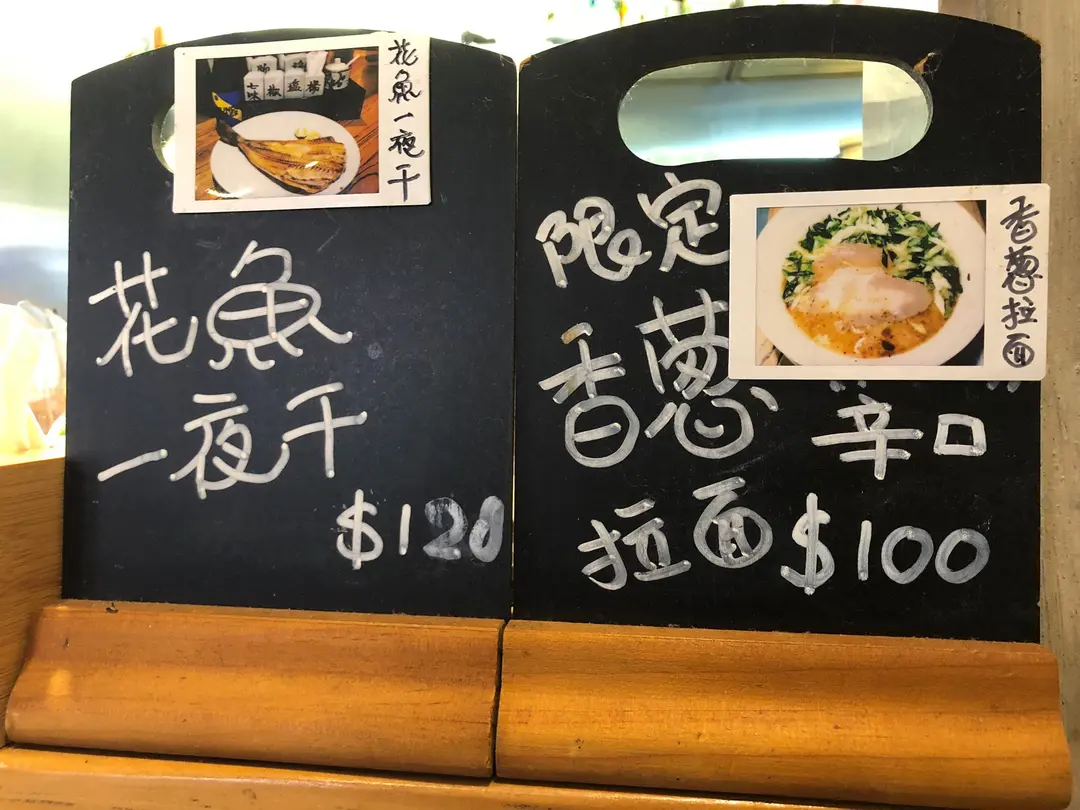 花魚一夜干
七味
椒
鹽
花魚
一夜干
$120
限定
香蔥拉面
香蔥
辛口
拉面 $100